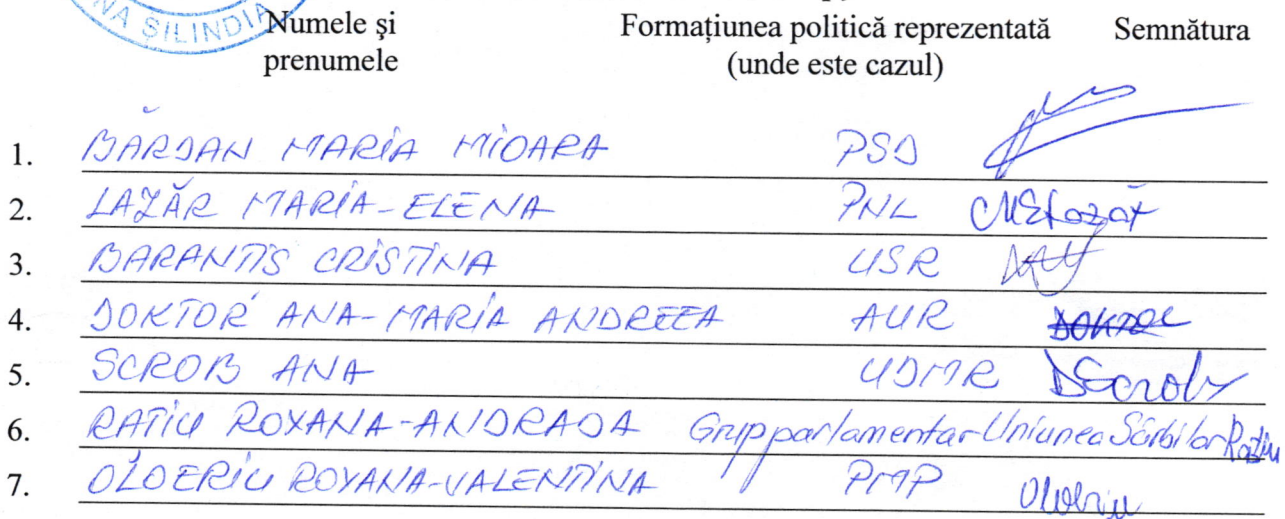 NA SILINDIA
Numele și Formațiunea politică reprezentată Semnătura
prenumele (unde este cazul)
1. BĂRDAN MARIA MIOARA PSD
2. LAZĂR MARIA-ELENA PNL
3. BARANTIS CRISTINA USR
4. DOKTOR ANA-MARIA ANDREEA AUR DOKTOR
5. SCROB ANA UDMR DScrob
6. RATIU ROXANA-ANDRADA Grup parlamentar-Uniunea Sârbilor Ratiu
7. ROXANA-VALENTINA PMP